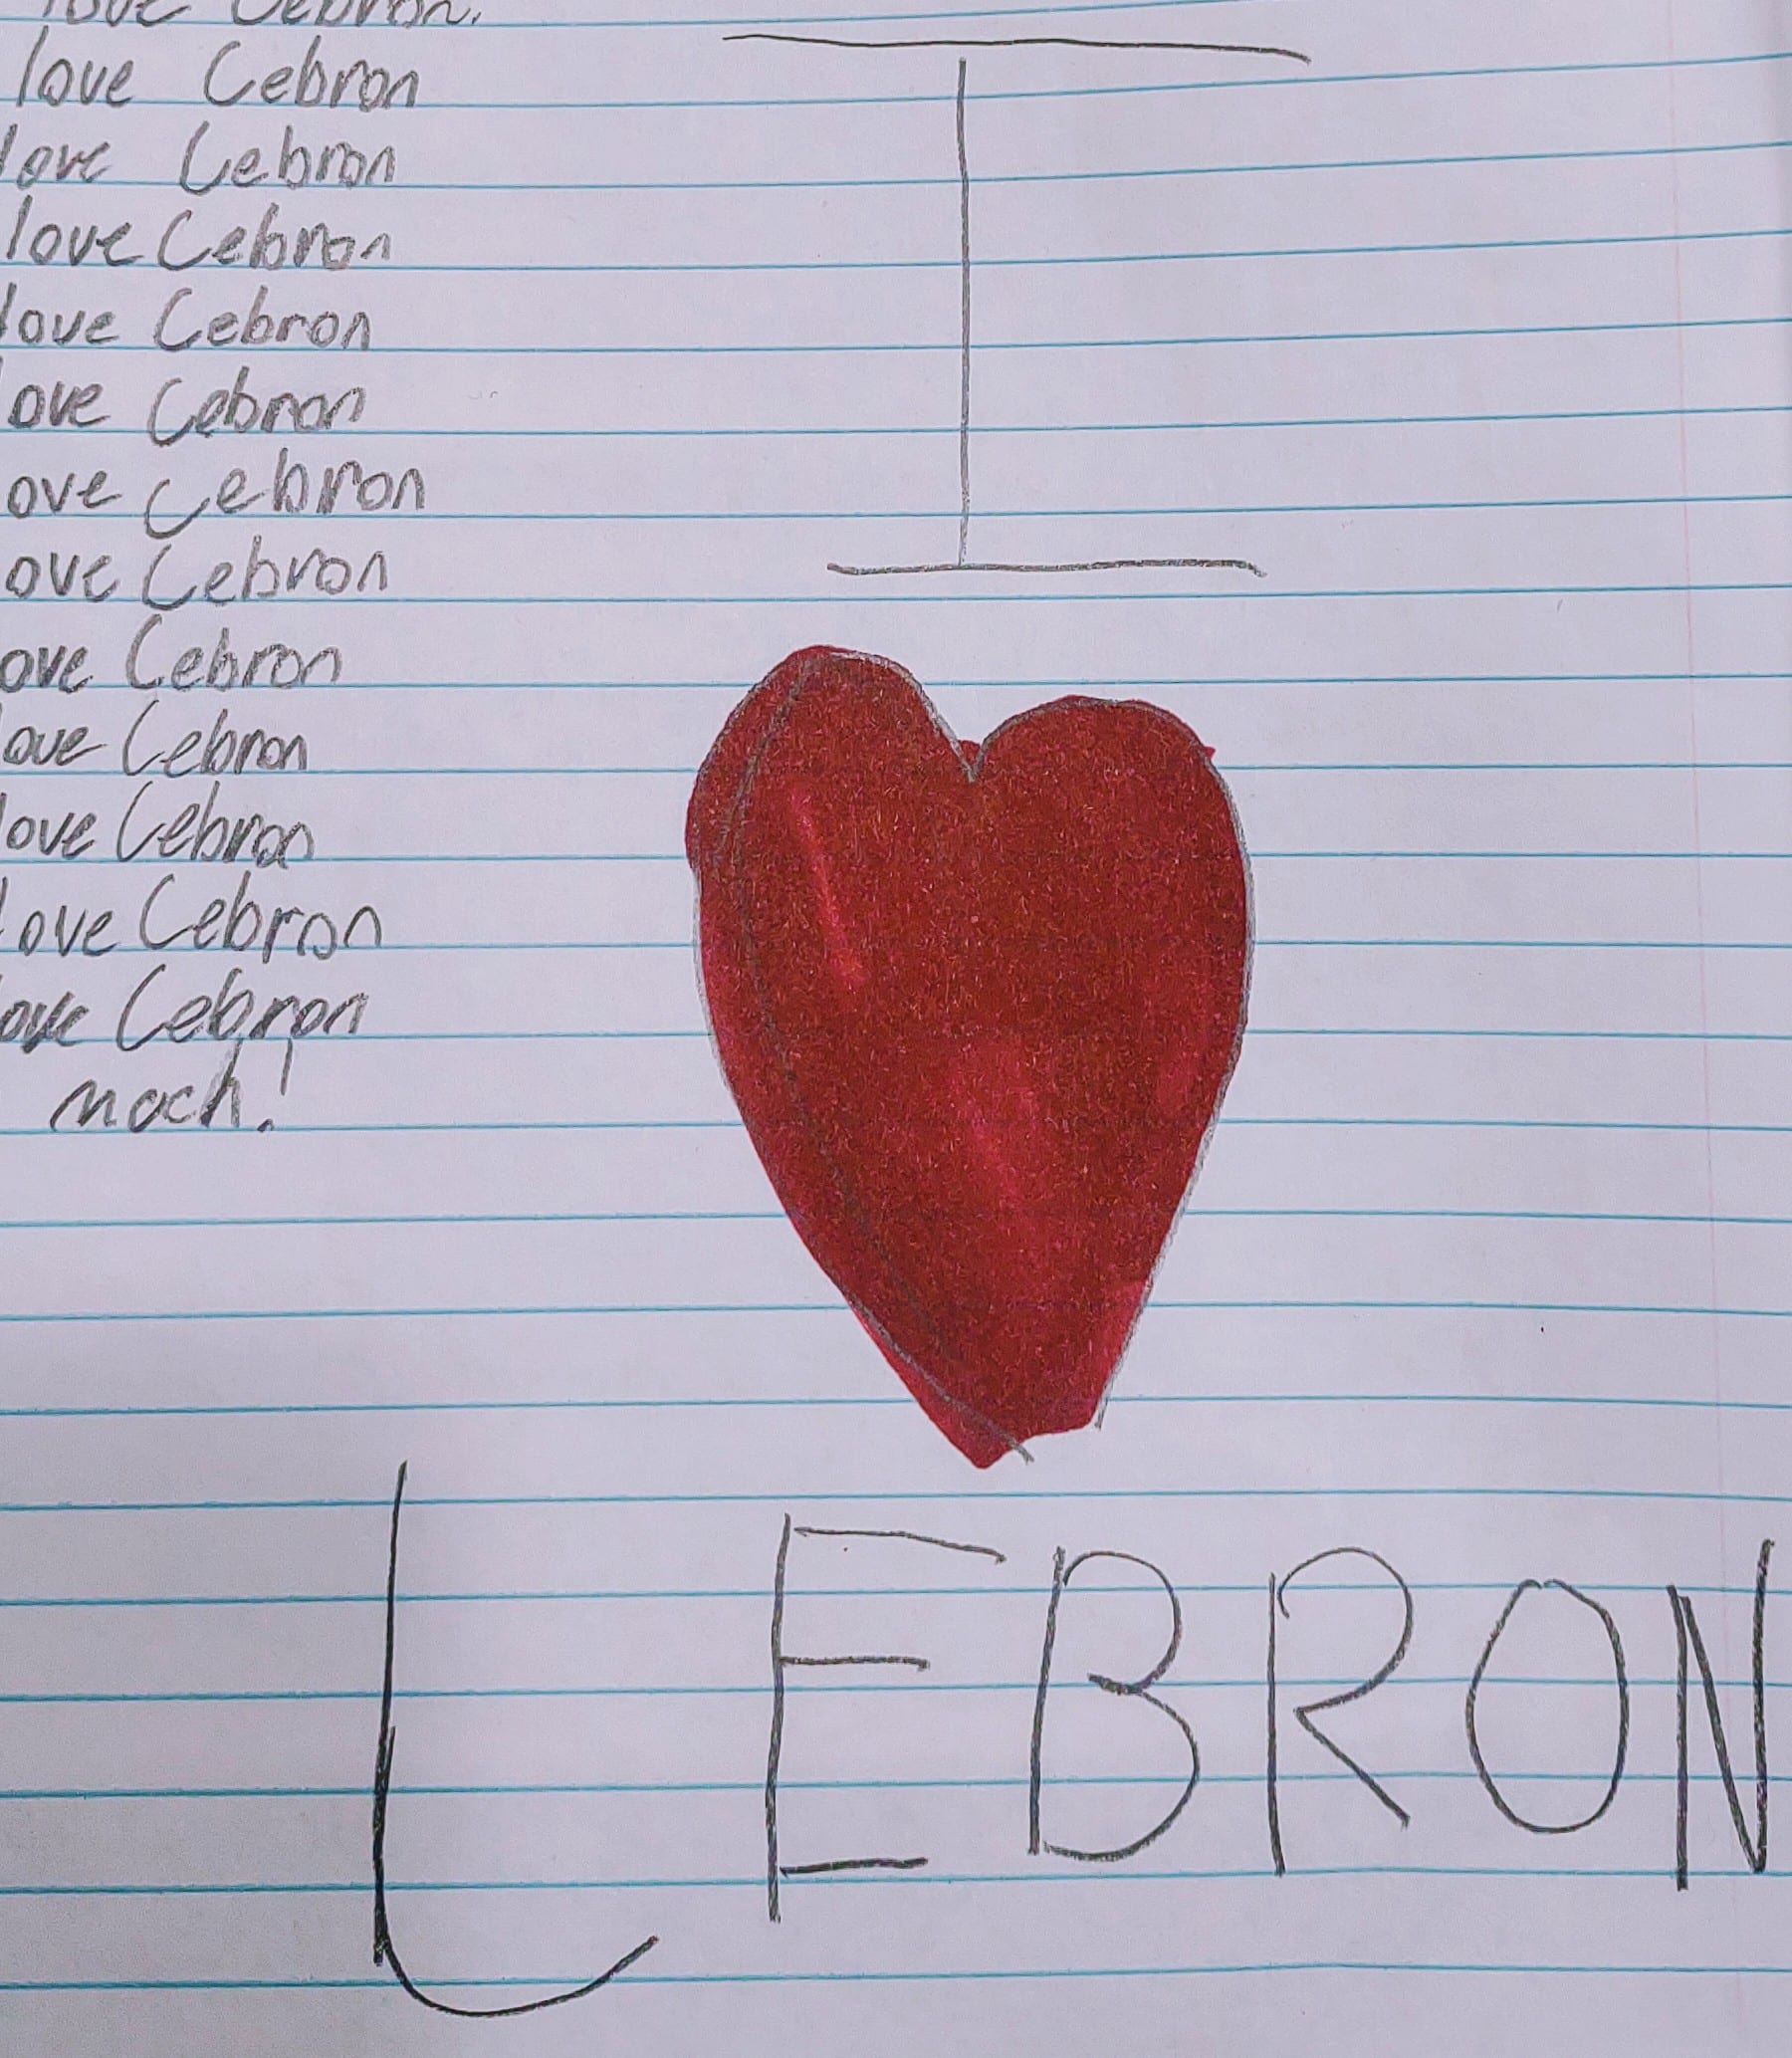 love Lebron.
love Lebron
love Lebron
love Lebron
love Lebron
ove Lebron
ove Lebron
ove Lebron
ove Lebron
ove Lebron
love Lebron
love Lebron
ove Lebron
much!
I
LEBRON